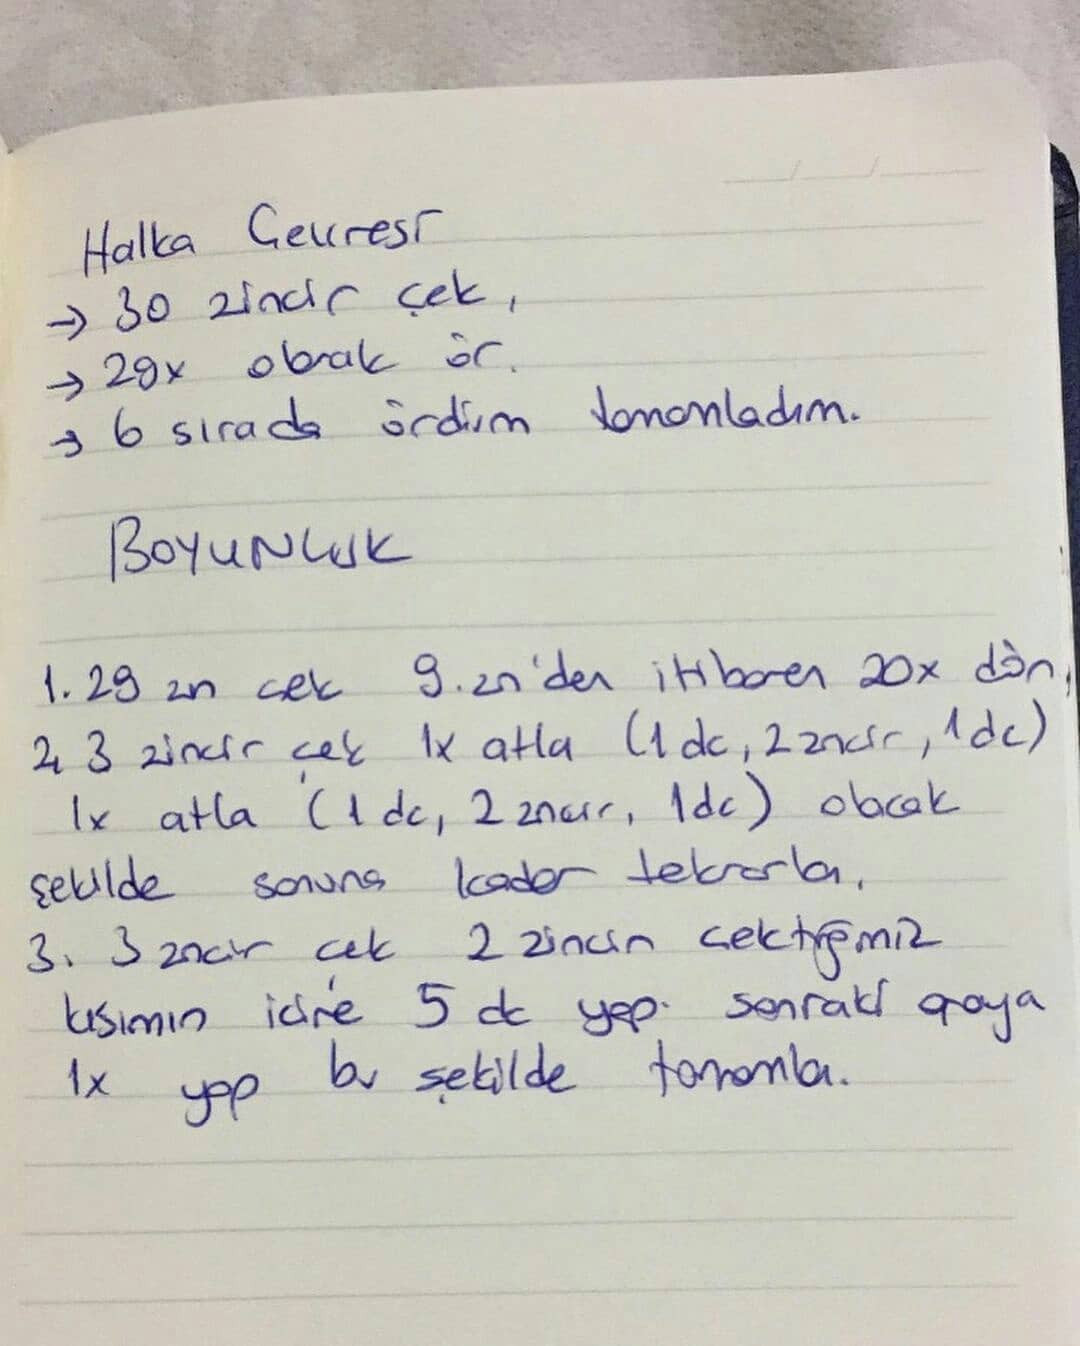 Halka Çevresi
→ 30 zincir çek,
→ 29x olarak ör.
→ 6 sırada ördüm tamamladım.
BOYUNLUK
1. 29 zn çek 9.zn'den itibaren 20x dön,
2, 3 zincir çek 1x atla (1 dc, 2 zncir, 1dc)
1x atla (1 dc, 2 zncir, 1dc) olacak
şekilde sonuna kadar tekrarla,
3. 3 zncir çek 2 zincin çektiğimiz
kısımın içine 5 dc yap. sonraki araya
1x yap bu şekilde tamamla.